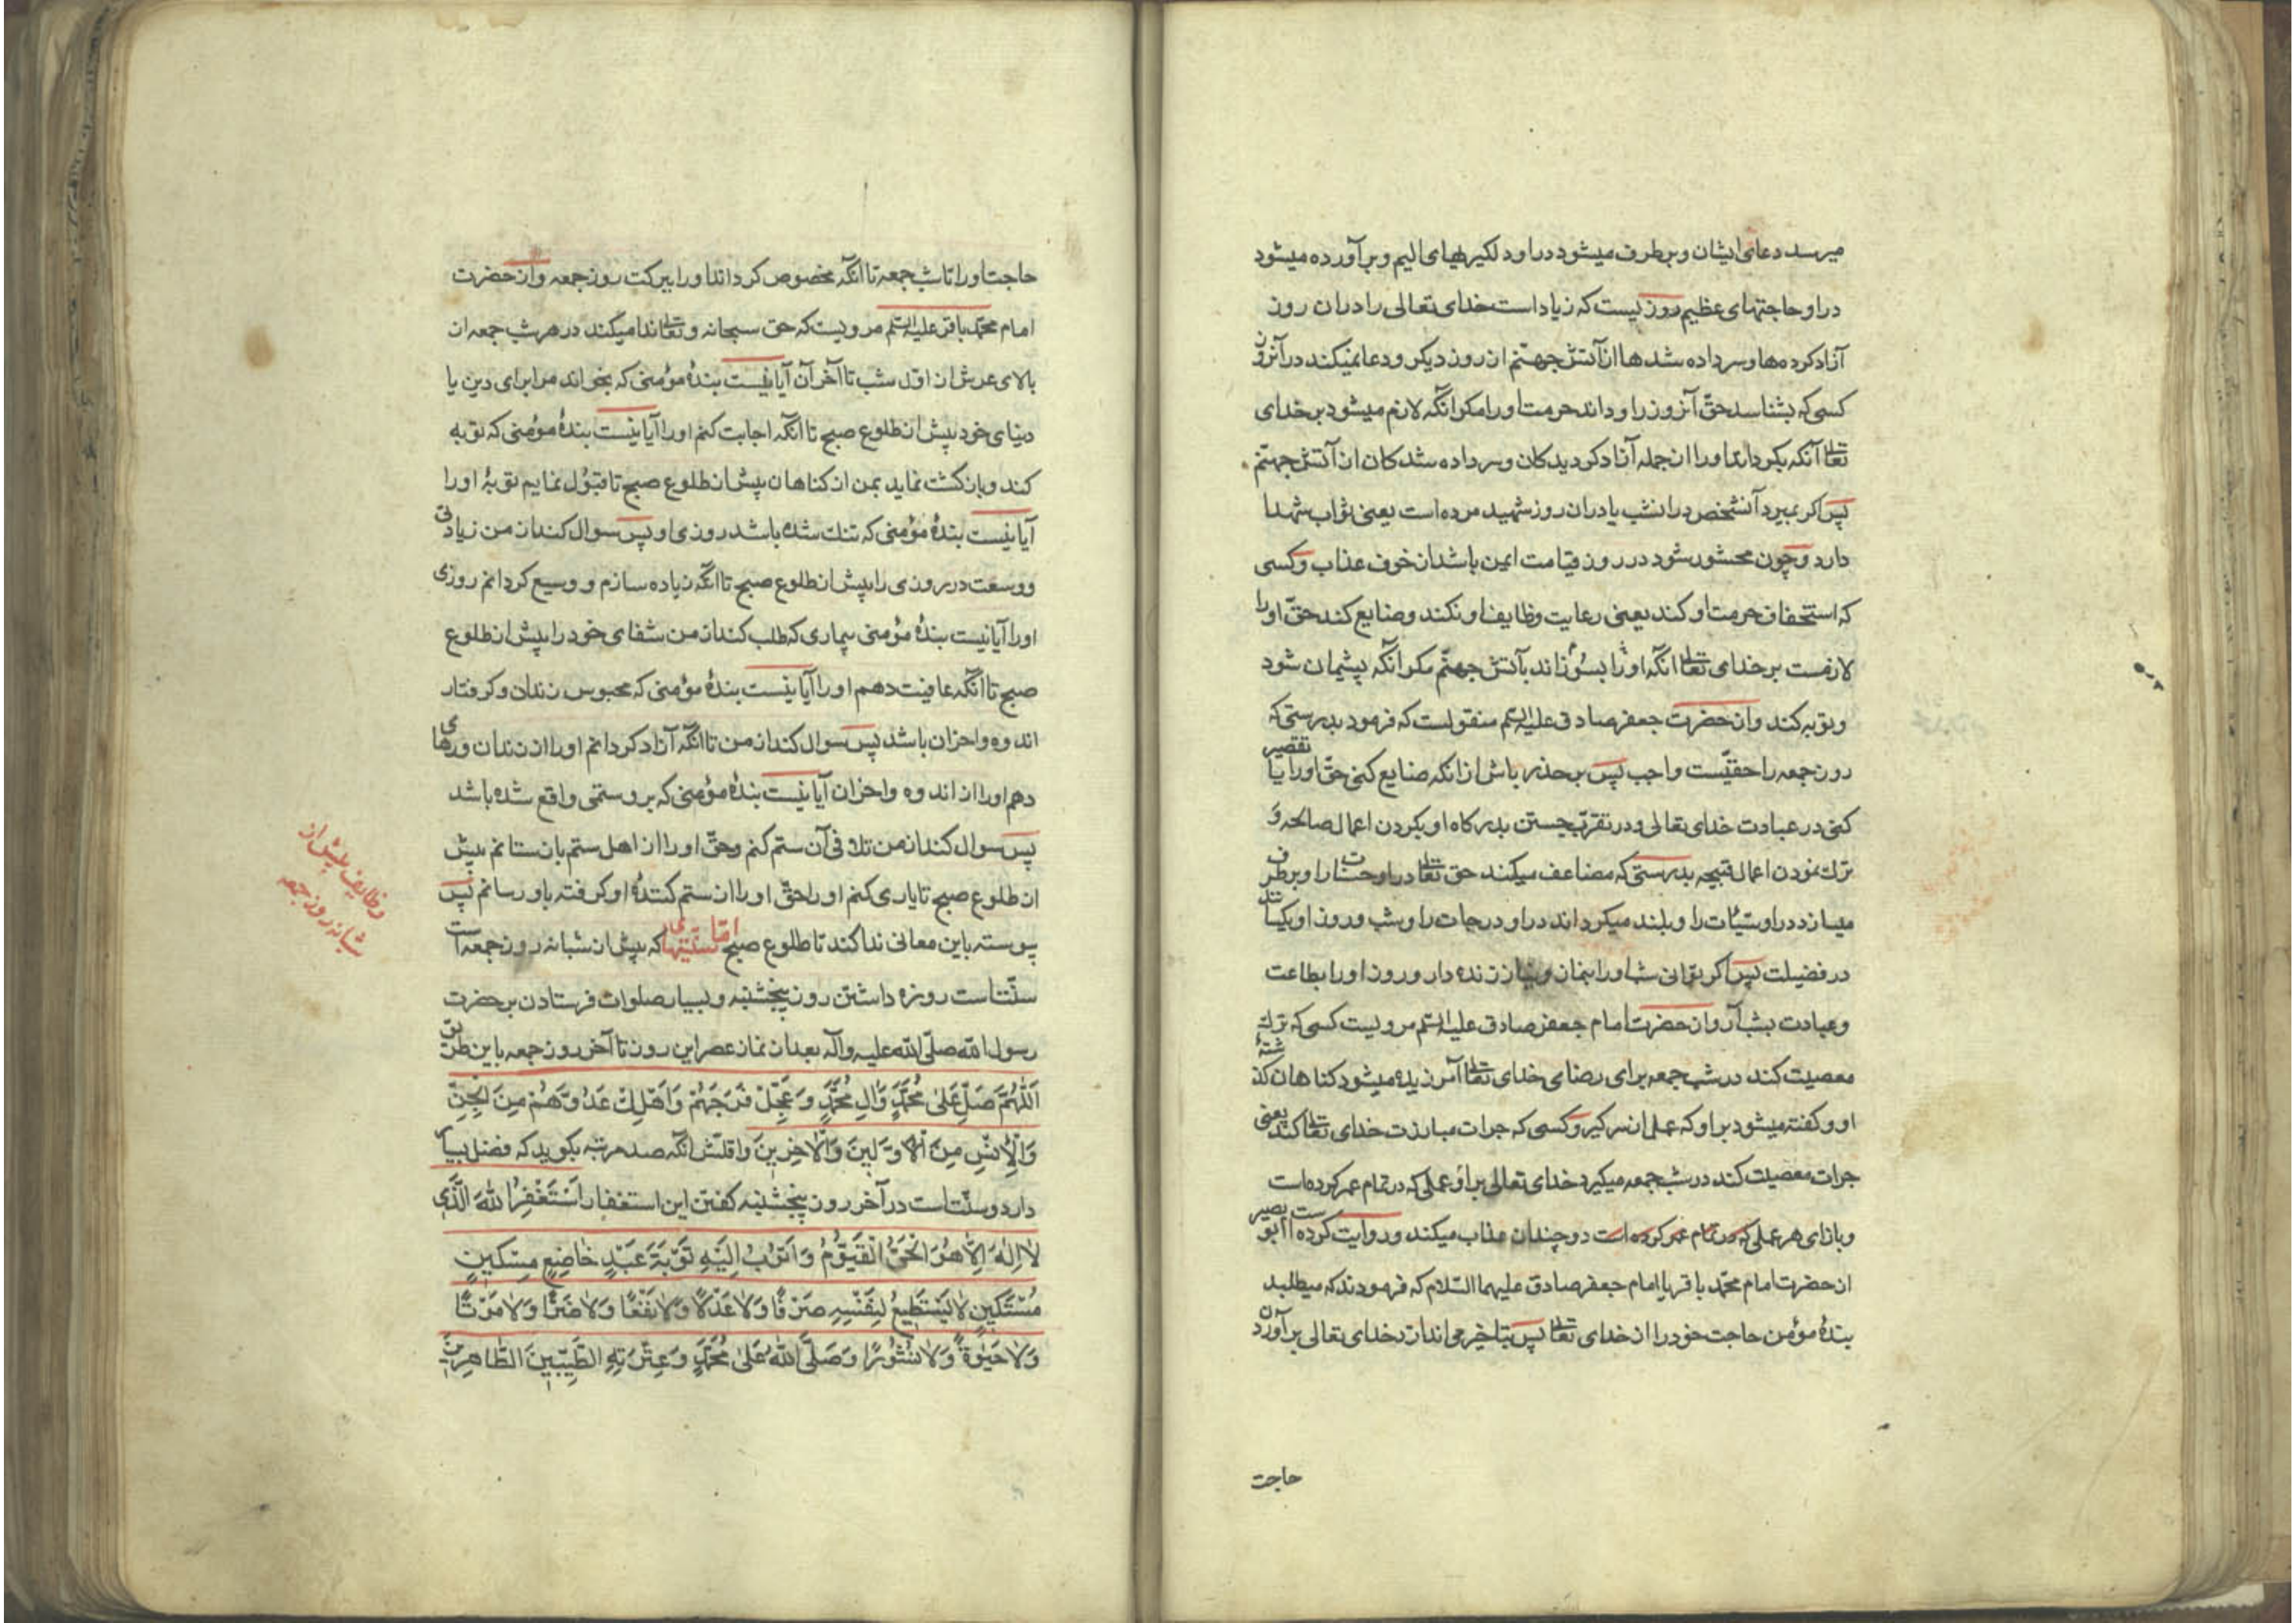 میرسد دعای ایشان و برطرف میشود در او دلگیریهای الیم و برآورده میشود
در او حاجتهای عظیم روزیست که زیاد است خدای تعالی را در ان روز
آزاد کرده ها و سر داده شدها از آتش جهنم از روز دیگر و دعا نمیکند در آنروز
کسی که بشناسد حق آنروز را و داند حرمت او را مکر انکه لازم میشود بر خدای
تعالی آنکه بکرداند او را از جمله آزاد کردیدکان و سر داده شدکان از آتش جهنم
پس اکر بمیرد آنشخص در انشب یا در ان روز شهید مرده است یعنی ثواب شهدا
دارد و چون محشور شود در روز قیامت ایمن باشد از خوف عذاب و کسی
که استخفاف حرمت او کند یعنی رعایت وظایف او نکند و ضایع کند حق او را
لازمست بر خدای تعالی انکه او را بسوزاند بآتش جهنم مکر انکه پشیمان شود
و توبه کند و از حضرت جعفر صادق علیه السلم منقولست که فرمود بدرستی که
روز جمعه را حقیست واجب پس بر حذر باش از انکه ضایع کنی حق او را یا تقصیر
کنی در عبادت خدای تعالی و در تقرب جستن بدرکاه او بکردن اعمال صالحه و
ترک نمودن اعمال قبیحه بدرستی که مضاعف میکند حق تعالی در او حسنات را و برطرف
میسازد در او سیئات را و بلند میکرداند در او درجات را و شب و روز او یکسانند
در فضیلت پس اکر توانی شب او را بنماز و نیاز زنده دار و روز او را بطاعت
و عبادت بشب آر و از حضرت امام جعفر صادق علیه السلم مرویست کسی که ترک
معصیت کند در شب جمعه برای رضای خدای تعالی آمرزیده میشود کناهان کذشتهٔ
او و کفته میشود بر او که عمل از سر کیر و کسی که جرات مبارزت خدای تعالی کند یعنی
جرات معصیت کند در شب جمعه میکیرد خدای تعالی بر او عملی که در تمام عمر کرده است
و بازای هر عملی که در تمام عمر کرده است دو چندان عذاب میکند و روایت کرده است ابو بصیر
از حضرت امام محمد باقر یا امام جعفر صادق علیهما السلام که فرمودند که میطلبد
بندهٔ مؤمن حاجت خود را از خدای تعالی پس بتاخیر می اندازد خدای تعالی برآوردن
حاجت
حاجت او را تا شب جمعه تا انکه مخصوص کرداند او را ببرکت روز جمعه و از حضرت
امام محمد باقر علیه السلم مرویست که حق سبحانه و تعالی ندا میکند در هر شب جمعه از
بالای عرش از اول شب تا آخر آن آیا نیست بندهٔ مؤمنی که بخواند مرا برای دین یا
دنیای خود پیش از طلوع صبح تا انکه اجابت کنم او را آیا نیست بندهٔ مؤمنی که توبه
کند و بازکشت نماید بمن از کناهان پیش از طلوع صبح تا قبول نمایم توبهٔ او را
آیا نیست بندهٔ مؤمنی که تنک شده باشد روزی او پس سوال کند از من زیادتی
و وسعت در روزی را پیش از طلوع صبح تا انکه زیاده سازم و وسیع کردانم روزی
او را آیا نیست بندهٔ مؤمنی بیماری که طلب کند از من شفای خود را پیش از طلوع
صبح تا انکه عافیت دهم او را آیا نیست بندهٔ مؤمنی که محبوس زندان و کرفتار
اندوه و احزان باشد پس سوال کند از من تا انکه آزاد کردانم او را از زندان و رهای
دهم او را از اندوه و احزان آیا نیست بندهٔ مؤمنی که بر او ستمی واقع شده باشد
پس سوال کند از من تلافی آن ستم کنم و حق او را از اهل ستم باز ستانم پیش
از طلوع صبح تا یاری کنم او را حق او را از ستم کنندهٔ او کرفته باو رسانم پس
پیوسته باین معانی ندا کند تا طلوع صبح امّا سنّتهای که پیش از شبانه روز جمعه است
سنت است روزه داشتن روز پنجشنبه و بسیار صلوات فرستادن بر حضرت
رسول الله صلی الله علیه وآله بعد از نماز عصر این روز تا آخر روز جمعه باین طریق
اَللّٰهُمَّ صَلِّ عَلٰى مُحَمَّدٍ وَاٰلِ مُحَمَّدٍ وَعَجِّلْ فَرَجَهُمْ وَاَهْلِكْ عَدُوَّهُمْ مِنَ الْجِنِّ
وَالْاِنْسِ مِنَ الْاَوَّلِينَ وَالْاٰخِرِينَ و اقلش انکه صد مرتبه بکوید که فضل بسیار
دارد و سنت است در آخر روز پنجشنبه کفتن این استغفار اَسْتَغْفِرُ اللّٰهَ الَّذِي
لَا اِلٰهَ اِلَّا هُوَ الْحَيُّ الْقَيُّومُ وَاَتُوبُ اِلَيْهِ تَوْبَةَ عَبْدٍ خَاضِعٍ مِسْكِينٍ
مُسْتَكِينٍ لَا يَسْتَطِيعُ لِنَفْسِهِ صَرْفًا وَلَا عَدْلًا وَلَا نَفْعًا وَلَا ضَرًّا وَلَا مَوْتًا
وَلَا حَيٰوةً وَلَا نُشُورًا وَصَلَّى اللّٰهُ عَلٰى مُحَمَّدٍ وَعِتْرَتِهِ الطَّيِّبِينَ الطَّاهِرِينَ
وظایف پیش از
شبانه روز جمعه